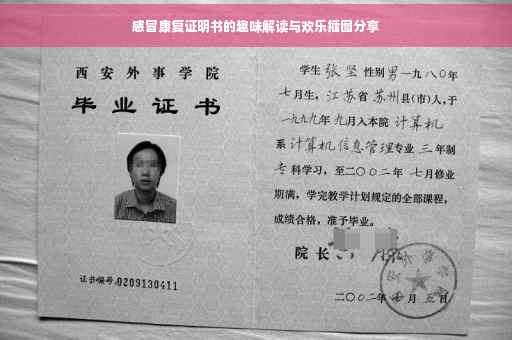 感冒康复证明书的趣味解读与欢乐插图分享
西安外事学院
毕业证书
证书编号:0209130411
学生 张坚 性别 男 一九八〇年
七月生，江苏省 苏州 县(市)人,于
一九九九年 九月入本院 计算机
系 计算机信息管理 专业 三 年制
专 科学习，至二〇〇二年 七月修业
期满，学完教学计划规定的全部课程，
成绩合格，准予毕业。
院长
二〇〇二年 月 五日